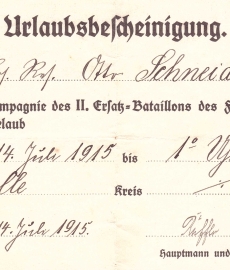 Urlaubsbescheinigung.
Otto Schneid
ompagnie des II. Ersatz-Bataillons des F
elaub
14. Juli 1915 bis 1.
lle Kreis
14. Juli 1915.
Hauptmann und